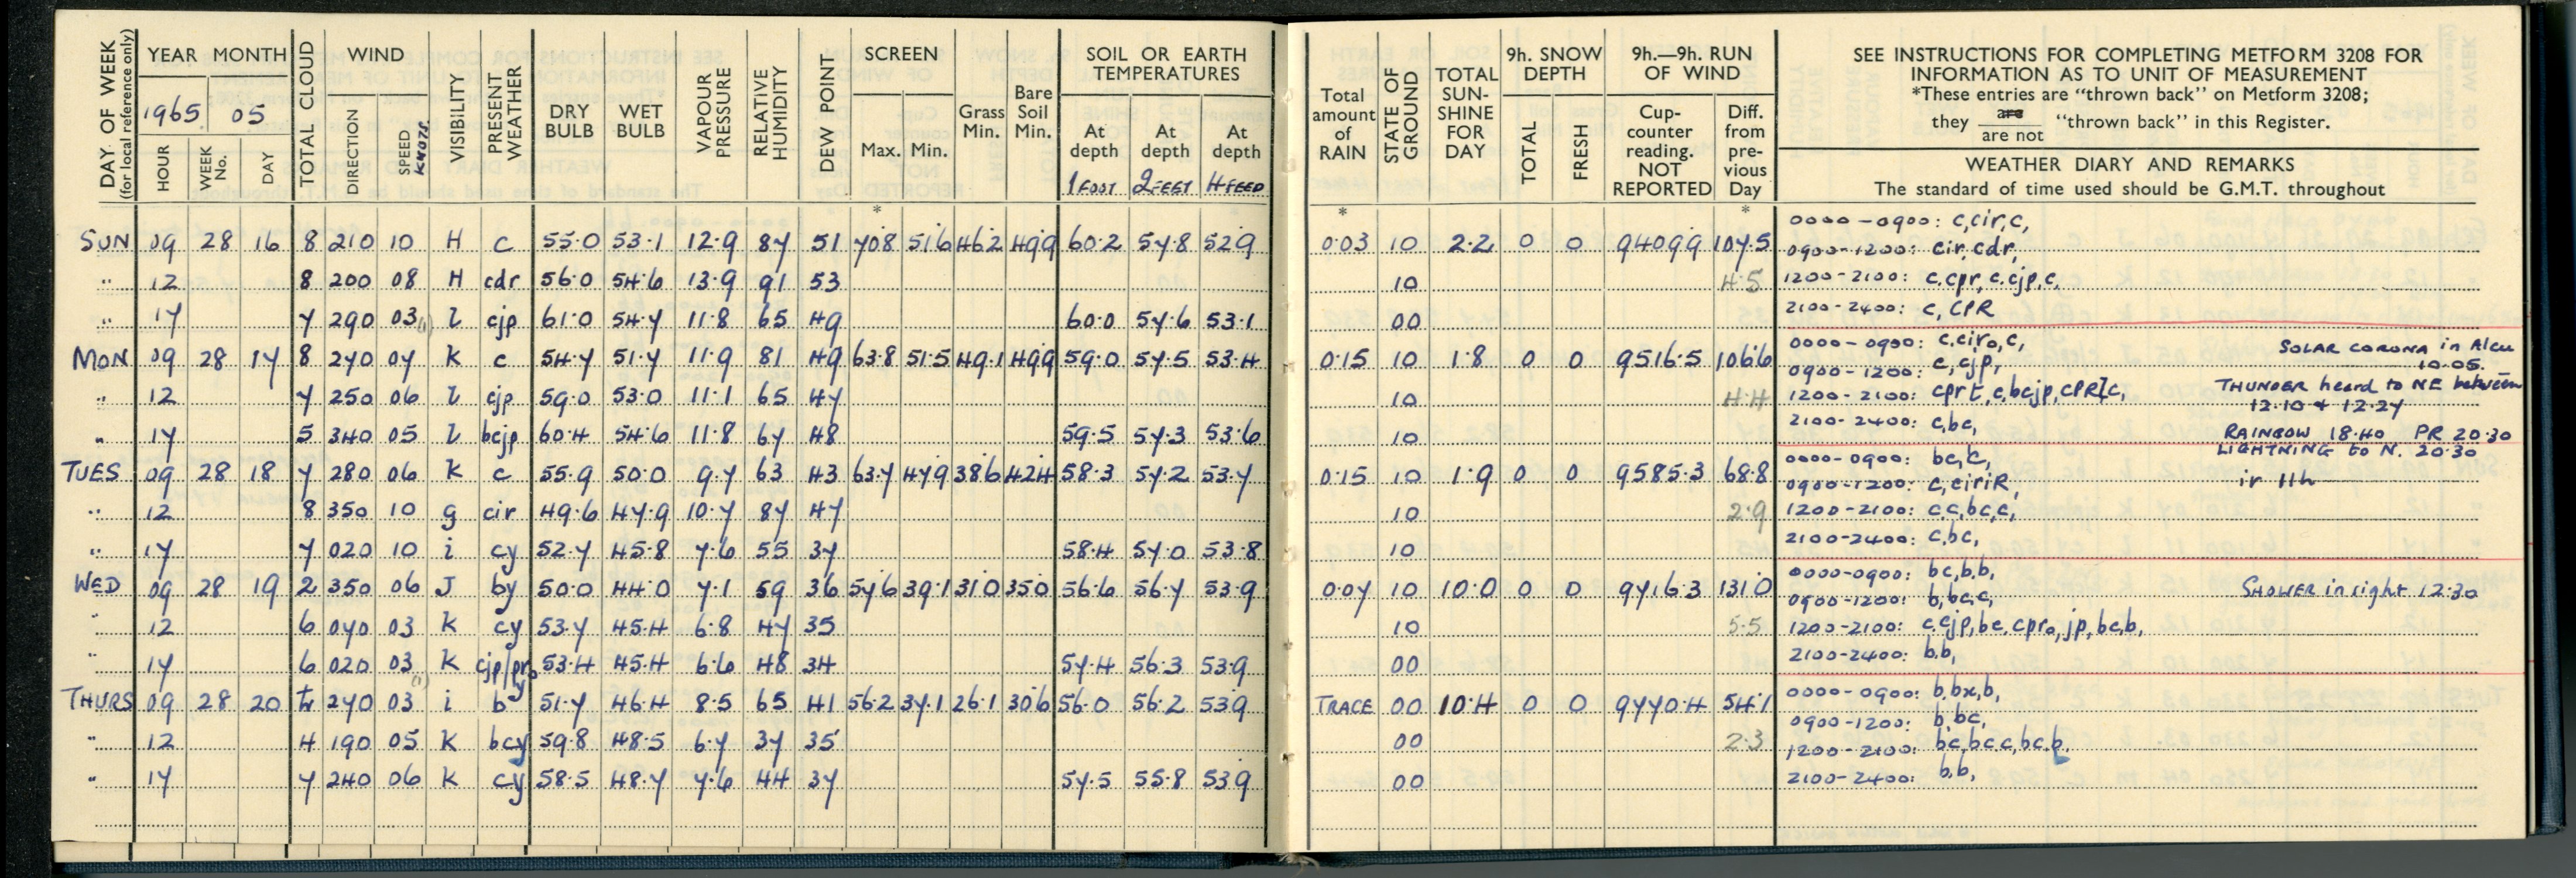 DAY OF WEEK
(for local reference only)
YEAR MONTH
1965 05
HOUR
WEEK No.
DAY
TOTAL CLOUD
WIND
DIRECTION
SPEED KNOTS
VISIBILITY
PRESENT WEATHER
DRY BULB
WET BULB
VAPOUR PRESSURE
RELATIVE HUMIDITY
DEW POINT
SCREEN
Max. Min.
Grass Min.
Bare Soil Min.
SOIL OR EARTH TEMPERATURES
At depth 1 FOOT
At depth 2 FEET
At depth 4 FEET
Total amount of RAIN
STATE OF GROUND
TOTAL SUN-SHINE FOR DAY
9h. SNOW DEPTH
TOTAL
FRESH
9h.—9h. RUN OF WIND
Cup-counter reading. NOT REPORTED
Diff. from pre-vious Day
SEE INSTRUCTIONS FOR COMPLETING METFORM 3208 FOR
INFORMATION AS TO UNIT OF MEASUREMENT
*These entries are "thrown back" on Metform 3208;
they are / are not "thrown back" in this Register.
WEATHER DIARY AND REMARKS
The standard of time used should be G.M.T. throughout
* * *
SUN 09 28 16 8 210 10 H c 55.0 53.1 12.9 87 51 70.8 51.6 46.2 49.9 60.2 57.8 52.9 0.03 10 2.2 0 0 9409.9 107.5
0000-0900: c,cir,c,
0900-1200: cir,cdr,
" 12 8 200 08 H cdr 56.0 54.6 13.9 91 53 10 4.5
1200-2100: c.cpr,c.cjp,c,
" 17 7 290 03 (1) l cjp 61.0 54.7 11.8 65 49 60.0 57.6 53.1 00
2100-2400: c, CPR
MON 09 28 17 8 270 07 K c 54.7 51.7 11.9 81 49 63.8 51.5 49.1 49.9 59.0 57.5 53.4 0.15 10 1.8 0 0 9516.5 106.6
0000-0900: c,ciro,c,
SOLAR CORONA in Alcu 10.05.
0900-1200: c, cjp,
" 12 7 250 06 l cjp 59.0 53.0 11.1 65 47 10 4.4
1200-2100: cprt,c,bcjp,CPRlc,
THUNDER heard to NE between
12.10 & 12.27
" 17 5 340 05 l bcjp 60.4 54.6 11.8 67 48 59.5 57.3 53.6 10
2100-2400: c,bc,
RAINBOW 18.40 PR 20.30
LIGHTNING to N. 20.30
TUES 09 28 18 7 280 06 K c 55.9 50.0 9.7 63 43 63.7 47.9 38.6 42.4 58.3 57.2 53.7 0.15 10 1.9 0 0 9585.3 68.8
0000-0900: bc,c,
0900-1200: c,ciriR,
ir 11h
" 12 8 350 10 g cir 49.6 47.9 10.7 87 47 10 2.9
1200-2100: c,c,bc,c,
" 17 7 020 10 i cy 52.7 45.8 7.6 55 37 58.4 57.0 53.8 10
2100-2400: c,bc,
WED 09 28 19 2 350 06 J by 50.0 44.0 7.1 59 36 57.6 39.1 31.0 35.0 56.6 56.7 53.9 0.07 10 10.0 0 0 9716.3 131.0
0000-0900: bc,b.b,
0900-1200: b,bc,c,
SHOWER in sight 12.30
" 12 6 070 03 K cy 53.7 45.4 6.8 47 35 10 5.5
1200-2100: c.cjp,bc,cpro,jp,bc,b,
" 17 6 020 03 (1) K cjp/pro y 53.4 45.4 6.6 48 34 57.4 56.3 53.9 00
2100-2400: b.b,
THURS 09 28 20 tr 270 03 i b 51.7 46.4 8.5 65 41 56.2 37.1 26.1 30.6 56.0 56.2 53.9 TRACE 00 10.4 0 0 9770.4 54.1
0000-0900: b,bx,b,
0900-1200: b,bc,
" 12 4 190 05 K bcy 59.8 48.5 6.7 37 35 00 2.3
1200-2100: bc,bc c,bc,b,
" 17 7 240 06 K cy 58.5 48.7 7.6 44 37 57.5 55.8 53.9 00
2100-2400: b.b,